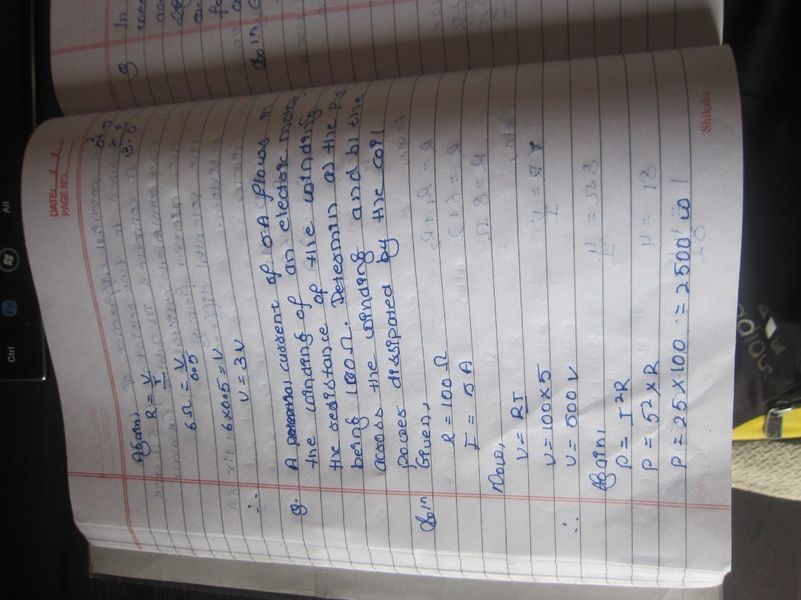 DATE:
PAGE NO.:
Again,
R = V/I
6Ω = V/0.5
6×0.5 = V
∴ V = 3V
0.5
× 6
3.0
Q. A current of 5A flows in
the winding of an electric motor,
the resistance of the winding
being 100Ω. Determine a) the P.d
across the winding and b) the
power dissipated by the coil
Soln Given,
R = 100Ω
I = 5A
Now,
V = RI
V = 100×5
∴ V = 500V
Again,
P = I²R
P = 5²×R
P = 25×100 = 2500 w
Shiksha
Ctrl
Alt